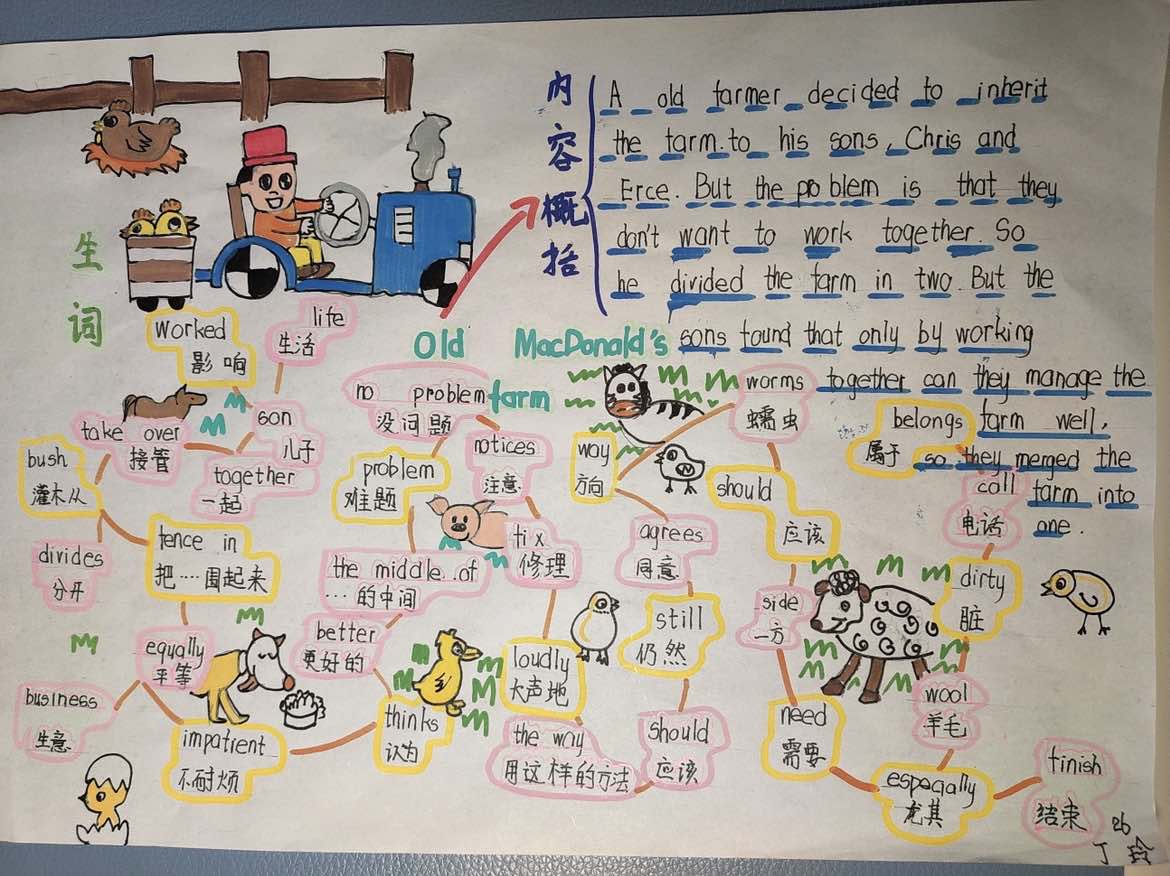 内容概括
A old farmer decided to inherit
the farm.to his sons, Chris and
Erce. But the problem is that they
don't want to work together. So
he divided the farm in two. But the
sons found that only by working
together can they manage the
farm well,
so they merged the
farm into
one.
Old MacDonald's
farm
生词
worked
影响
life
生活
son
儿子
together
一起
take over
接管
bush
灌木从
divides
分开
fence in
把····围起来
equally
平等
business
生意
impatient
不耐烦
thinks
认为
better
更好的
the middle of
···的中间
problem
难题
no problem
没问题
notices
注意
fix
修理
loudly
大声地
the way
用这样的方法
should
应该
still
仍然
agrees
同意
way
方向
worms
蠕虫
should
应该
side
一方
need
需要
especially
尤其
finish
结束
wool
羊毛
dirty
脏
call
电话
belongs
属于
26